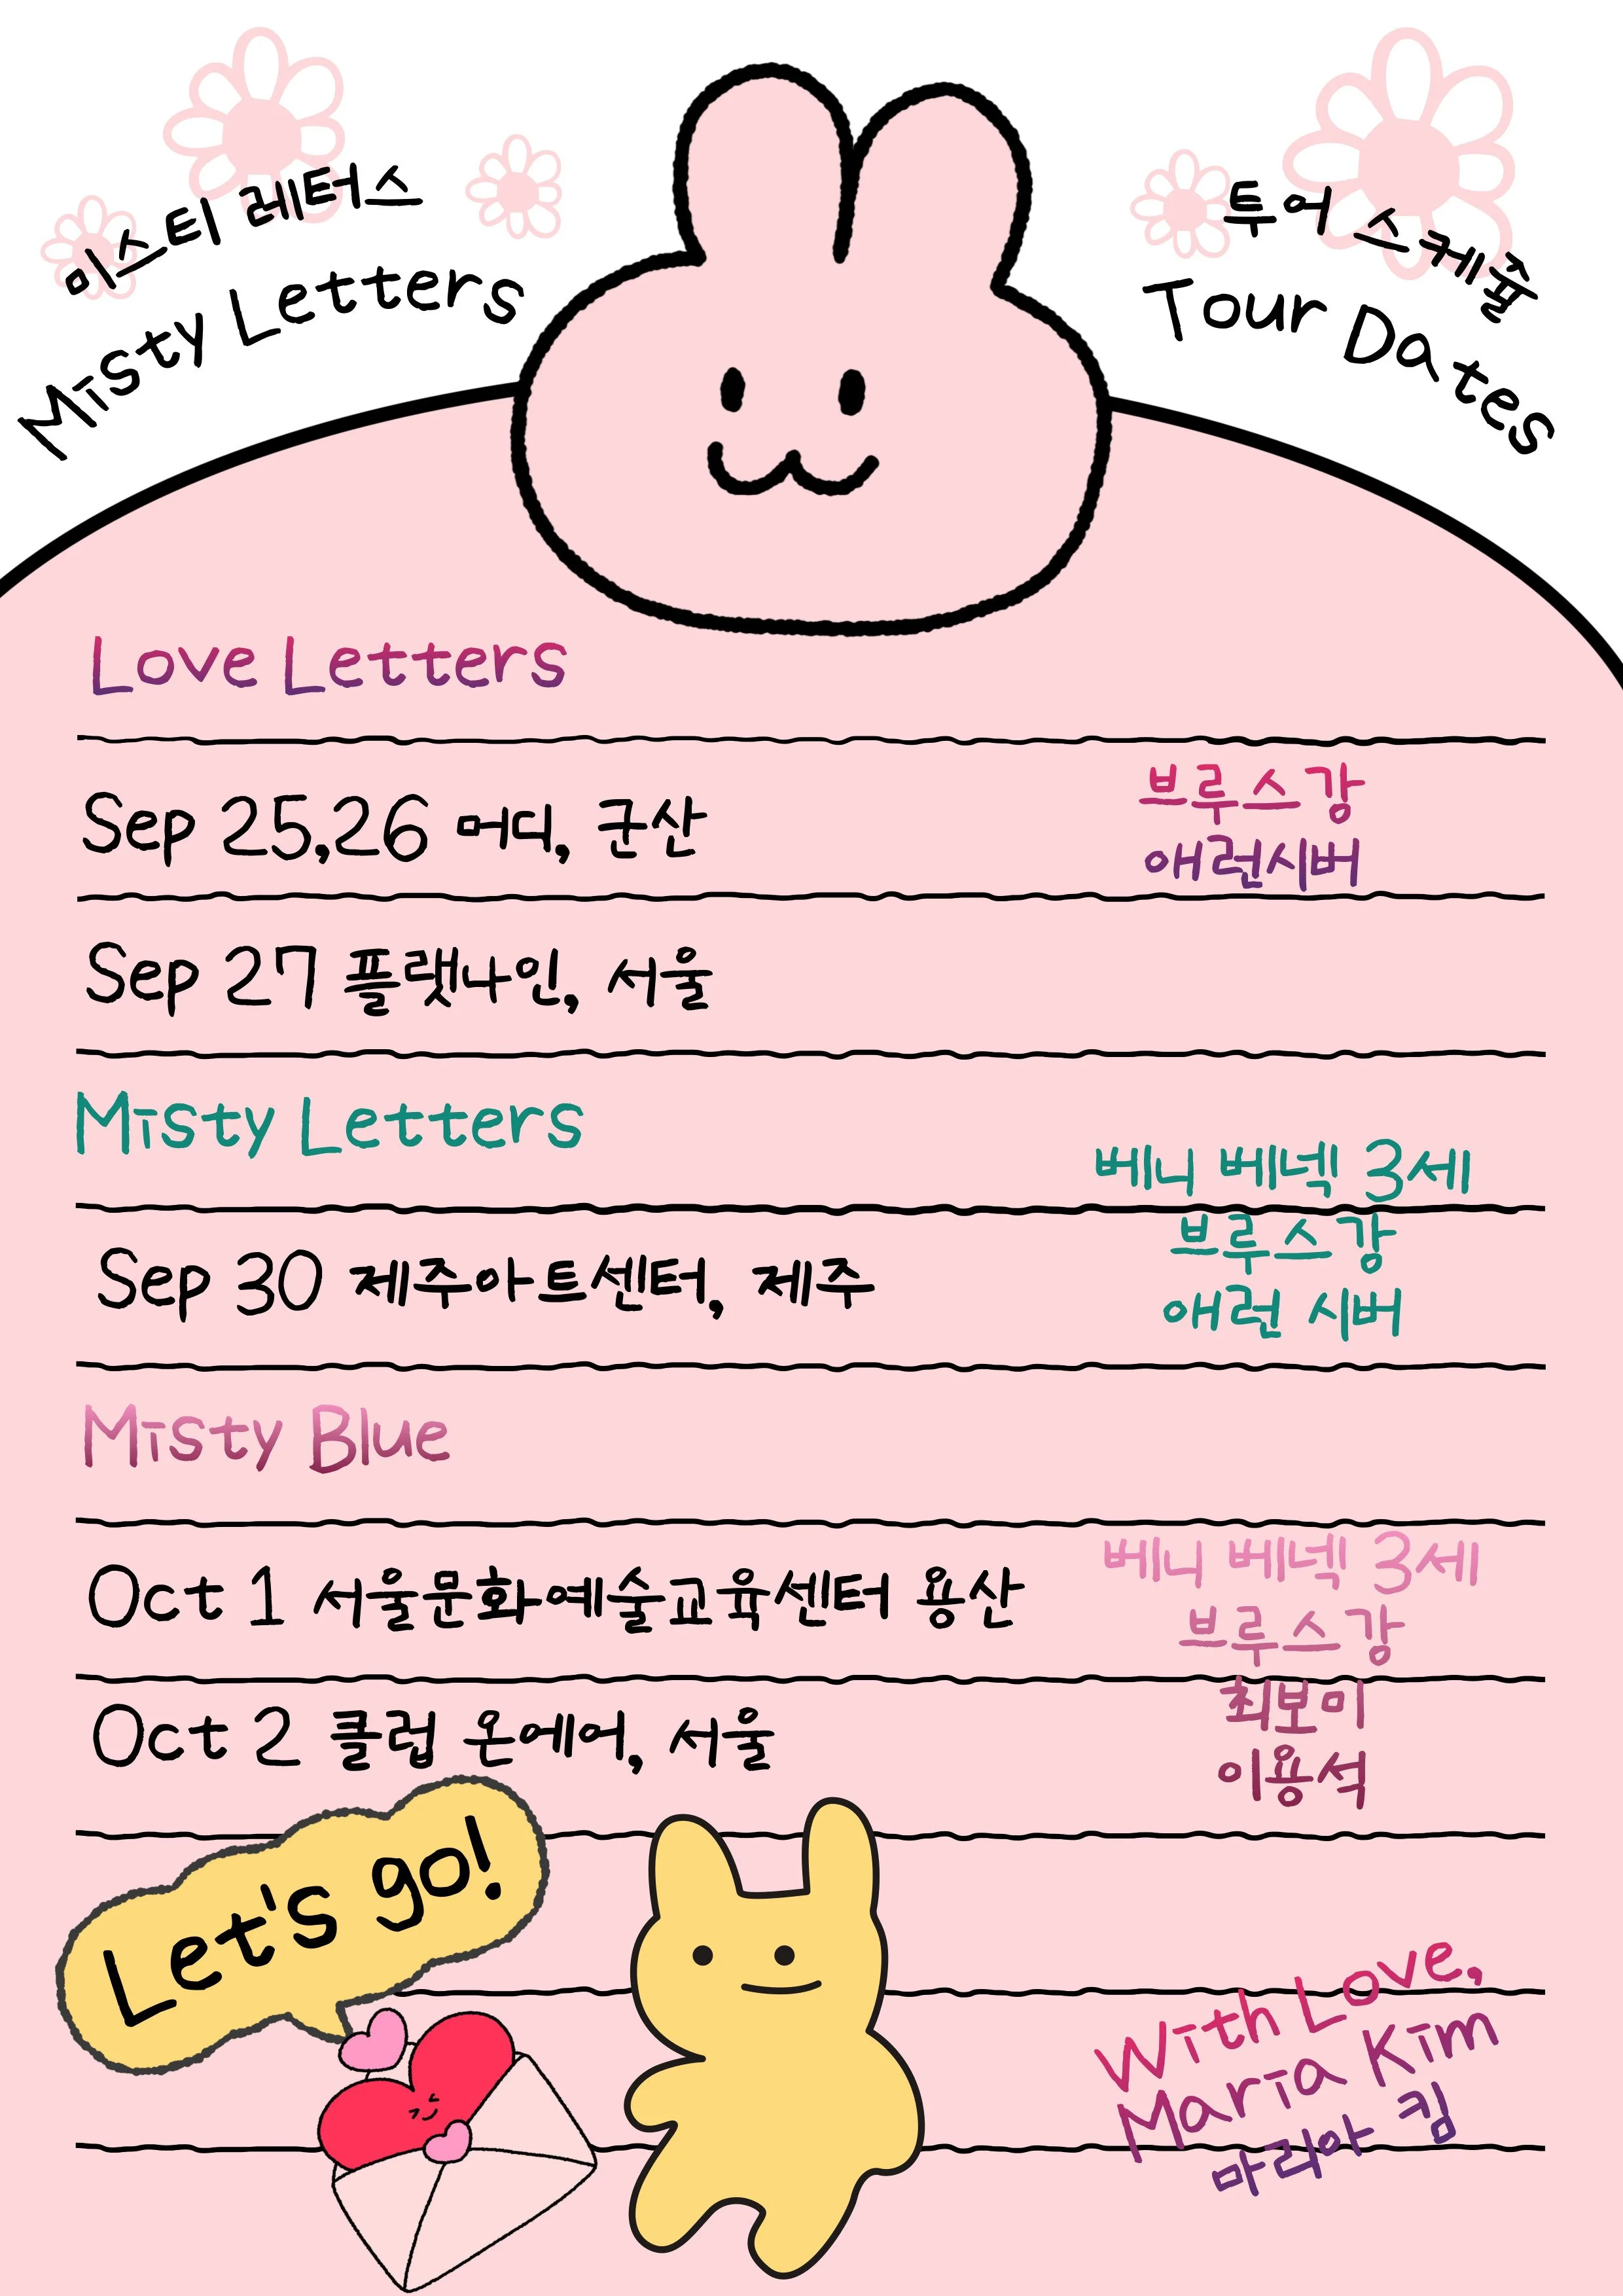 미스티 레터스
Misty Letters
투어 스케줄
Tour Dates
Love Letters
Sep 25,26 머디, 군산
브루스강
애런시버
Sep 27 플랫나인, 서울
Misty Letters
베니 베넥 3세
브루스강
애런 시버
Sep 30 제주아트센터, 제주
Misty Blue
Oct 1 서울문화예술교육센터 용산
베니 베넥 3세
브루스강
최보미
이용석
Oct 2 클럽 온에어, 서울
Let's go!
With Love,
Maria Kim
마리아 킴